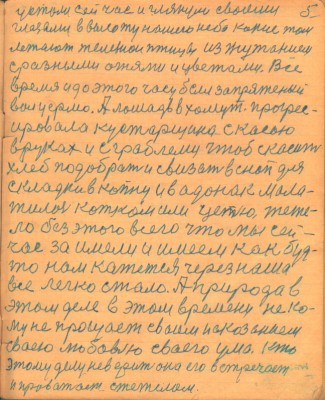 цетом сей час и глянули своими 5
глазами в высоту нашего неба какие там
летают техкой птицы из
с разными огнями и цветами. Всё
время и до этого часу был запряженый
вол ярмо. А лошадь в хомут. прогрес-
ировала кустарщина с касою
в руках и с граблеми чтоб скасить
хлеб подобрат и свизат в сноп для
складки в копну и в адонак мала-
тилос котком или цепю, тяже-
ло без этого всего что мы сей-
час за имели и имеем как буд-
то нам кажется через наша
все легко стало. А природа в
этом деле в этом времени неко-
му не прощает своим наказанием
сваею любовлю сваего ума. кто
этому делу неверит она его встречает
и проважает с тежелом.